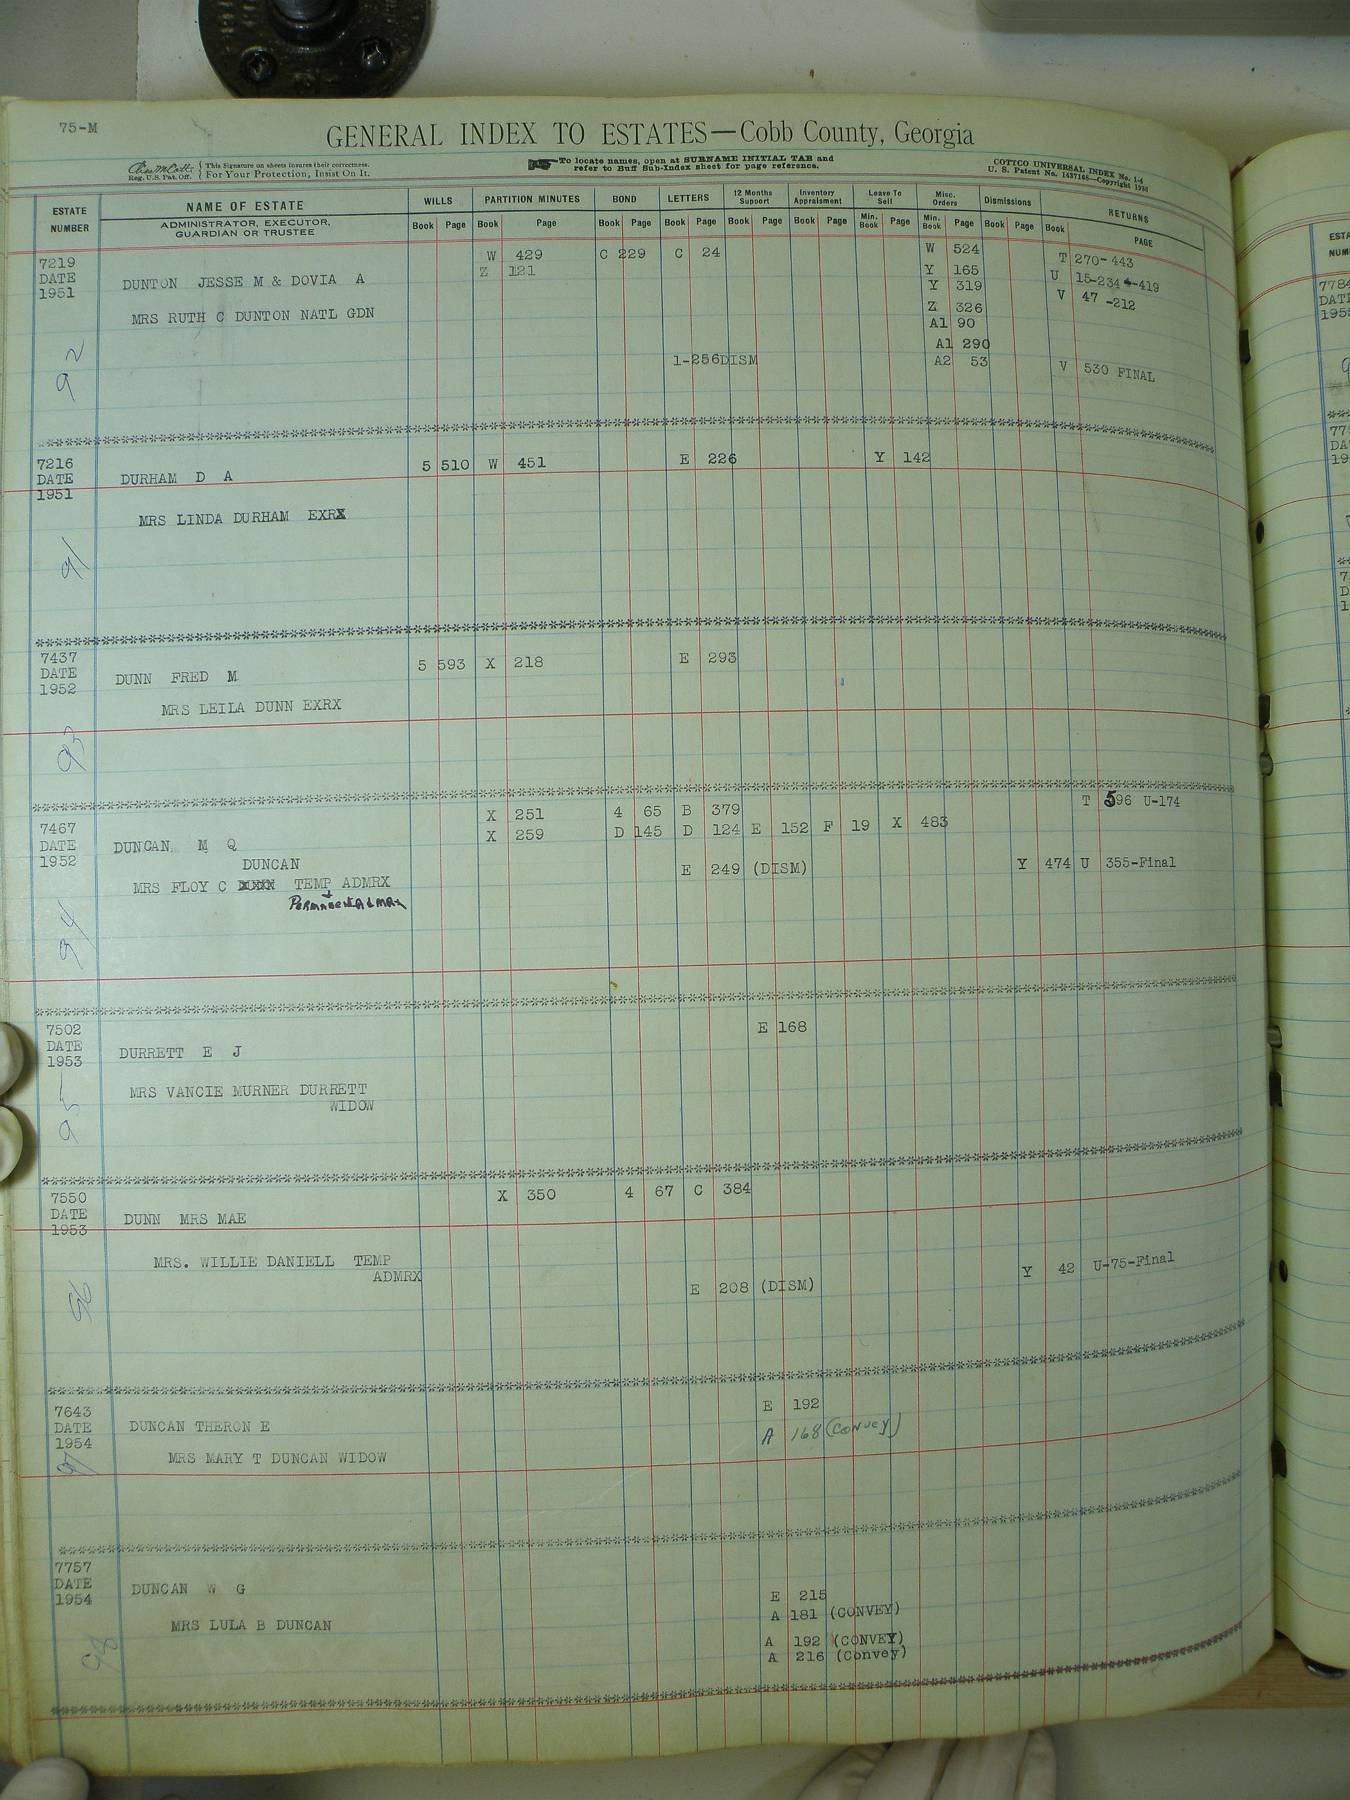 75-M
GENERAL INDEX TO ESTATES—Cobb County, Georgia
This Signature on sheets insures their correctness.
Reg. U.S. Pat. Off. For Your Protection, Insist On It.
To locate names, open at SURNAME INITIAL TAB and
refer to Buff Sub-Index sheet for page reference.
COTTCO UNIVERSAL INDEX No. 1-4
U. S. Patent No. 1437166—Copyright 1931
ESTATE NUMBER NAME OF ESTATE WILLS PARTITION MINUTES BOND LETTERS 12 Months Support Inventory Appraisment Leave To Sell Misc. Orders Dismissions RETURNS
ADMINISTRATOR, EXECUTOR, GUARDIAN OR TRUSTEE Book Page Book Page Book Page Book Page Book Page Book Page Min. Book Page Min. Book Page Book Page Book PAGE
7219 W 429 C 229 C 24 W 524 T 270-443
DATE Z 121 Y 165 U 15-234-419
1951 DUNTON JESSE M & DOVIA A Y 319 V 47 -212
MRS RUTH C DUNTON NATL GDN Z 326
A1 90
A1 290
92 1-256DISM A2 53 V 530 FINAL
7216 5 510 W 451 E 226 Y 142
DATE DURHAM D A
1951
MRS LINDA DURHAM EXRX
91
7437 5 593 X 218 E 293
DATE DUNN FRED M
1952
MRS LEILA DUNN EXRX
93
X 251 4 65 B 379 T 596 U-174
7467 X 259 D 145 D 124 E 152 F 19 X 483
DATE DUNCAN M Q
1952 DUNCAN E 249 (DISM) Y 474 U 355-Final
MRS FLOY C TEMP ADMRX
Permanent Admrx
94
7502 E 168
DATE DURRETT E J
1953
MRS VANCIE MURNER DURRETT
WIDOW
95
7550 X 350 4 67 C 384
DATE DUNN MRS MAE
1953
MRS. WILLIE DANIELL TEMP Y 42 U-75-Final
ADMRX E 208 (DISM)
96
7643 E 192
DATE DUNCAN THERON E A 168 (Convey)
1954
MRS MARY T DUNCAN WIDOW
97
7757
DATE DUNCAN W G E 215
1954 A 181 (CONVEY)
MRS LULA B DUNCAN A 192 (CONVEY)
A 216 (Convey)
98